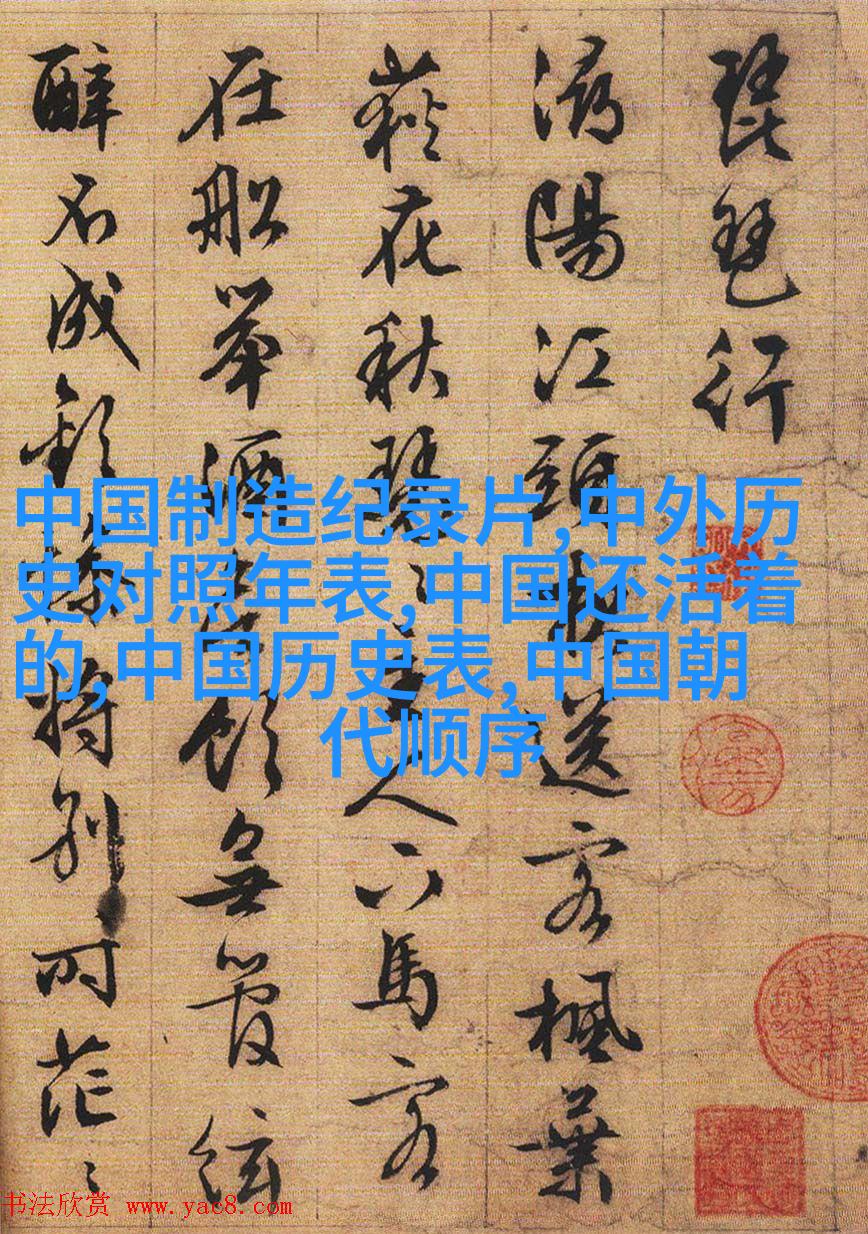 琵琶行
潯陽江頭夜送客楓葉
荻花秋瑟〻主人下馬客
在船舉酒欲飲無管絃
醉不成歡慘將別〻時茫〻
中国制造纪录片,中外历
史对照年表,中国还活着
的,中国历史表,中国朝
代顺序
书法欣赏 www.yac8.com